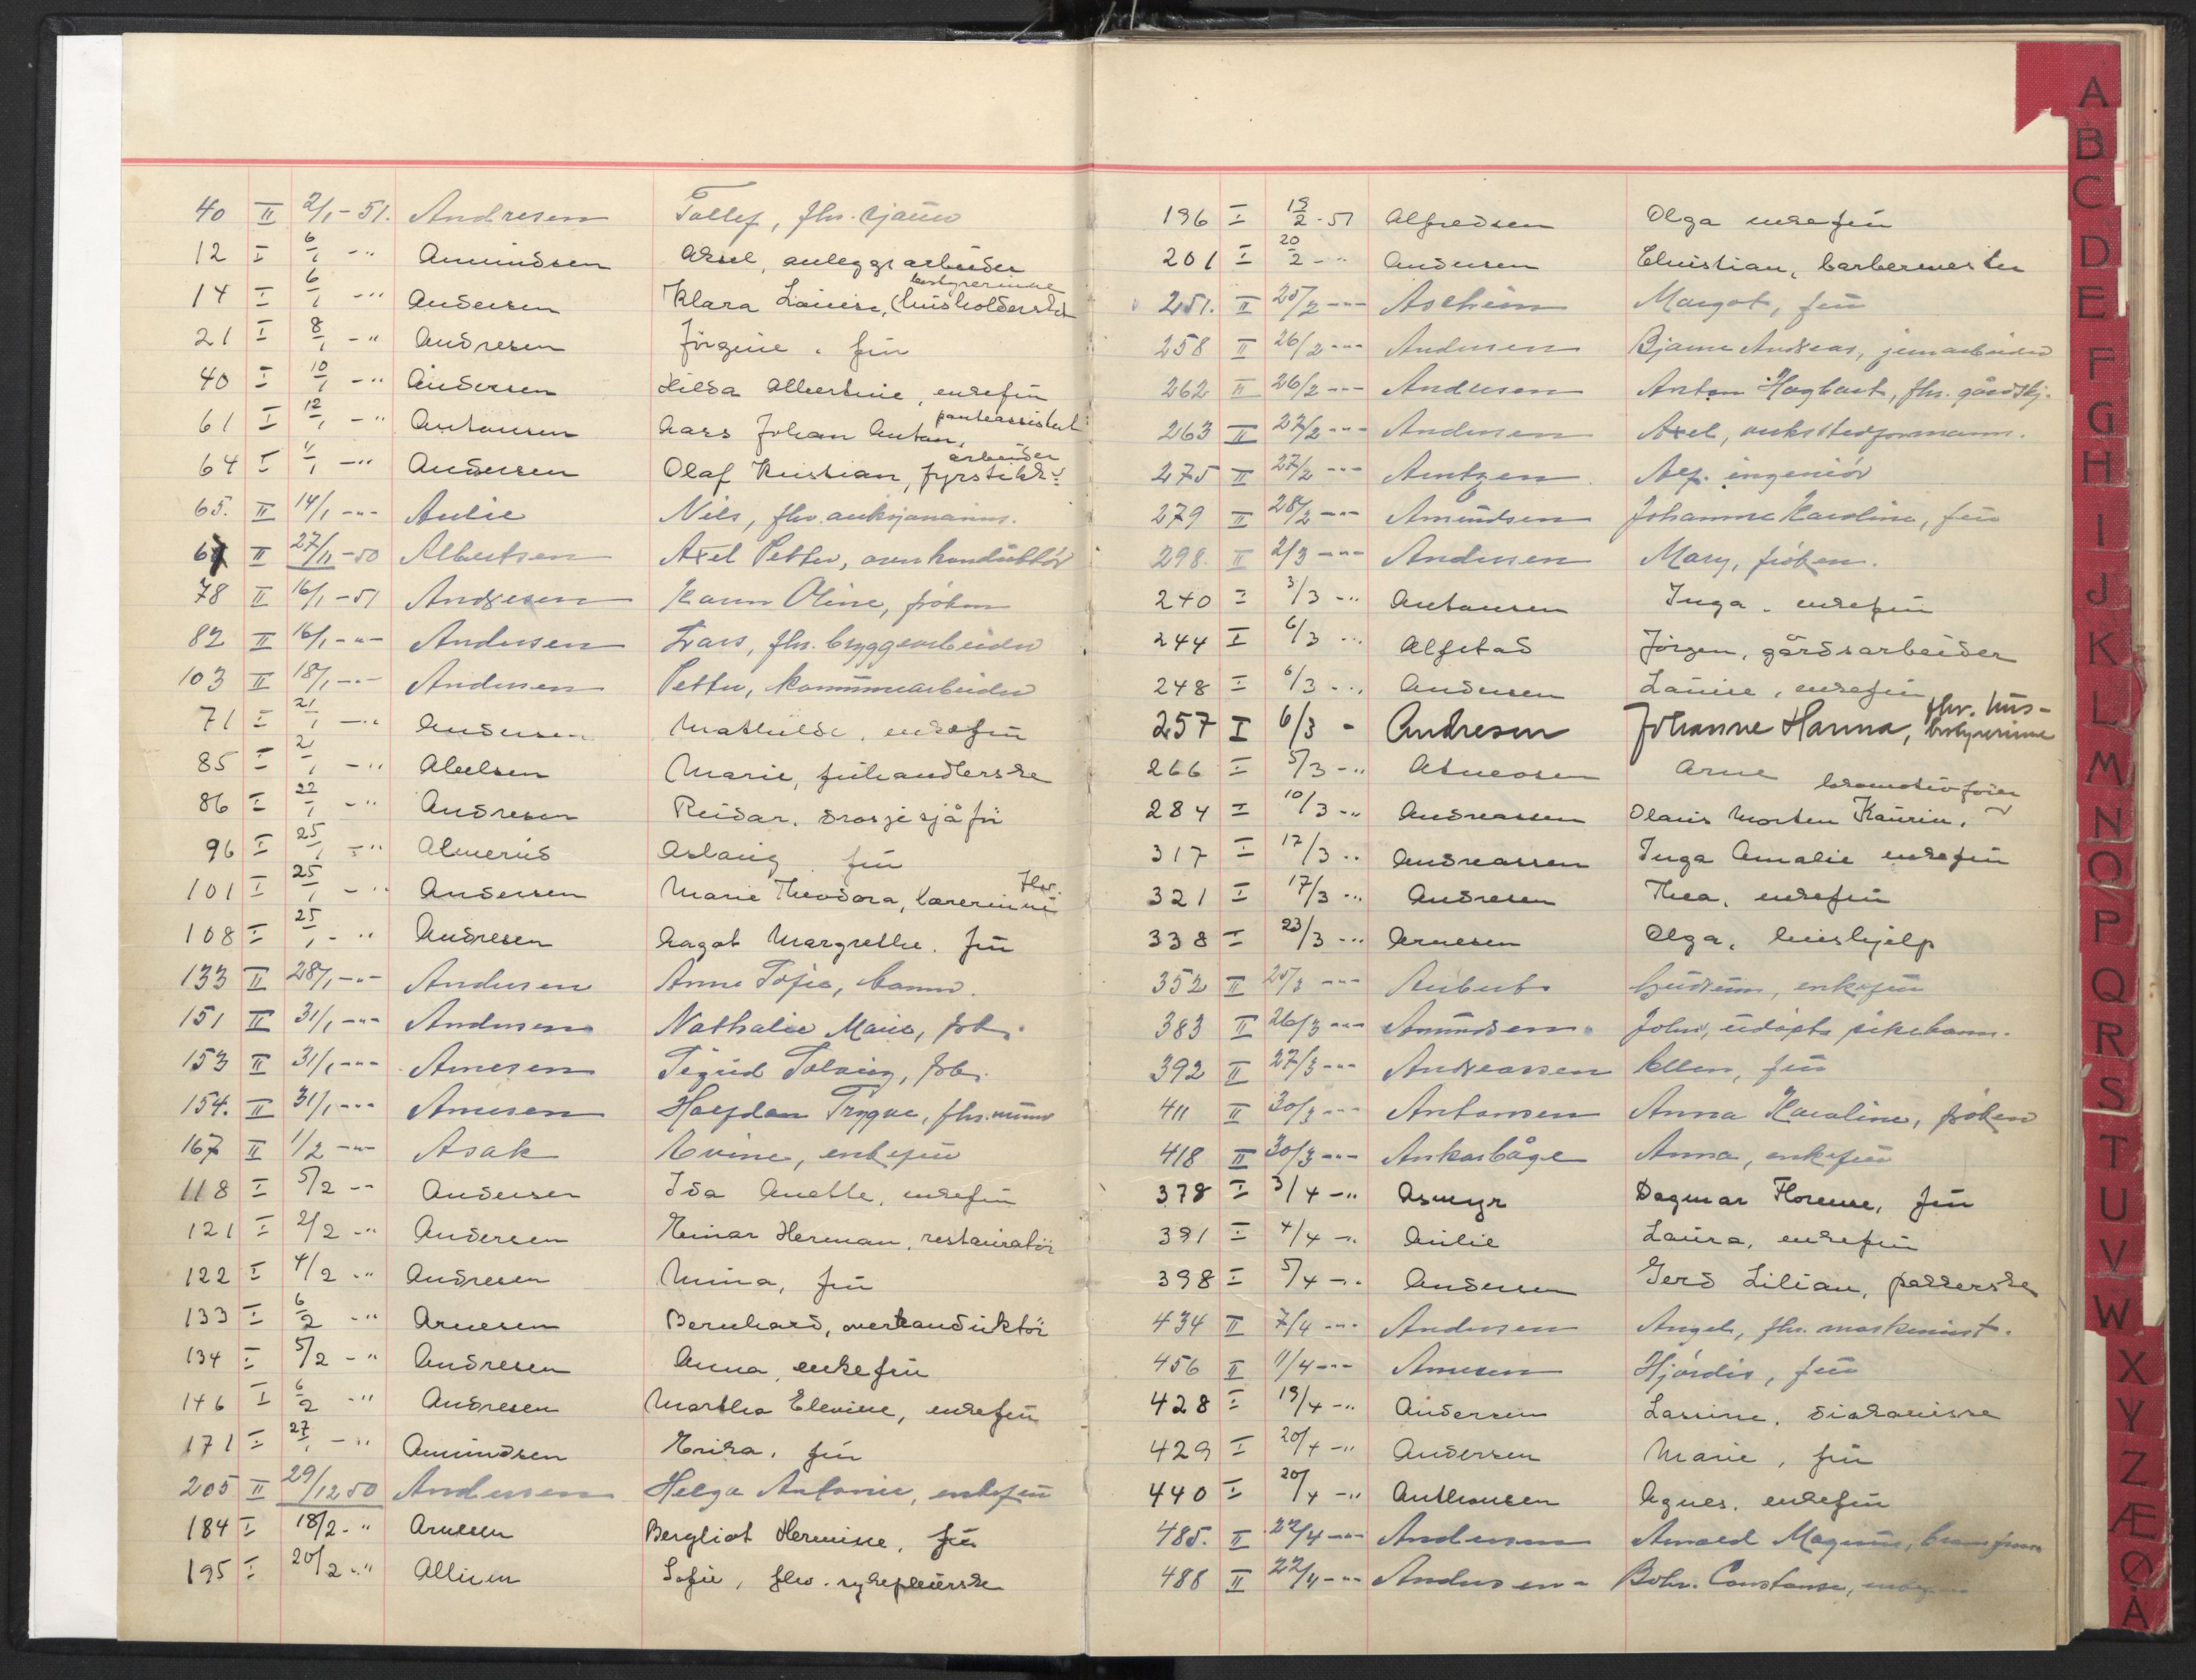 40 II 2/1-51. Andresen Tollef, fhv. sjømo
12 I 6/1 -" Amundsen Aksel, anleggsarbeider
14 I 6/1 -" Andersen Klara Louise, (husholderske bestyrerinne
21 I 8/1 -" Andresen Jørgine, fru
40 I 10/1 -" Andersen Hilda Albertine, enkefru
61 I 12/1 -" Antonsen Lars Johan Anton, panteassistent
64 I 11/1 -" Andersen Olaf Kristian, fyrstikk- arbeider
65. II 14/1 -"- Aulie Nils, fhv.
67 II 27/11-50 Albertsen Axel Petter, overkonduktør
78 II 16/1-51 Andresen Karen Oline, frøken
82 II 16/1-"- Andersen Lars, fhv. bryggearbeider
103 II 18/1-"- Andersen Petter, kommunearbeider
71 I 21/1 -" Andersen Mathilde, enkefru
85 I 21/1 -" Abelsen Marie, fruhandlerske
86 I 22/1 -" Andresen Reidar, drosjesjåfør
96 I 25/1 -" Almerud Aslaug fru
101 I 25/1 -" Andersen Marie Theodora, lærerinne fhv.
108 I 25/1 -" Andresen Aagot Margrethe. fru
133 II 28/1-"- Andersen Anne Sofie, barn.
151 II 31/1-"- Andersen Nathalie Marie, frk.
153 II 31/1-"- Arnesen Sigrid Solveig, frk.
154. II 31/1-"- Arnesen Halfdan Trygve, fhv. murer
167 II 1/2-"- Asak Evine, enkefru
118 I 5/2 -" Andersen Ida Anette, enkefru
121 I 2/2 -" Andersen Einar Herman, restauratør
122 I 4/2 -" Andresen Mina, fru
133 I 6/2 -" Arnesen Bernhard, overkonduktør
134 I 5/2 -" Andresen Anna, enkefru
146 I 6/2 -" Andresen Martha Elevine, enkefru
171 I 27/1 -" Amundsen Erika, fru
205 II 29/12 50 Andersen Helga Antonie, enkefru
184 I 18/2-" Arnesen Bergliot Hermine, fru
195 I 20/2-" Sofie, fhv. sykepleierske
196 I 19/2-51 Alfredsen Olga enkefru
201 I 20/2-" Andersen Christian, barbermester
251. II 25/2-"- Ascheim Margot, fru
258 II 26/2-"- Andersen Bjarne Andreas, jernarbeider
262 II 26/2-"- Andersen Anton Hagbart, fhv. gårdskj.
263 II 27/2-"- Andersen Axel, verkstedformann.
275 II 27/2-"- Arntzen Alf. ingeniør
279 II 28/2-"- Amundsen Johanne Karoline, fru
298. II 2/3-"- Andersen Mary, frøken.
240 I 3/3-" Antonsen Inga. enkefru
244 I 6/3-" Alfstad Jørgen, gårdsarbeider
248 I 6/3-" Andersen Louise, enkefru
257 I 6/3 - Andresen Johanne Hanna, fhv. hus- bestyrerinne
266 I 5/3-" Arne
284 I 10/3-" Andreassen Olaus Morten Kaurin, lokomotivfører
317 I 12/3-" Andreassen Inga Amalie enkefru
321 I 17/3-" Andresen Thea, enkefru
338 I 23/3-" Arnesen Olga, hushjelp
352 II 25/3-"- Aubert Gudrun, enkefru
383 II 26/3-"- Amundsen John, udøpt pikebarn.
392 II 27/3-"- Andreassen Ellen, fru
411 II 30/3-"- Antonsen Anna Karoline, frøken
418 II 30/3-"- Ankarbåge Anna, enkefru
378 I 3/4-" Asmyr Dagmar Florence, fru
391 I 4/4-" Aulie Laura, enkefru
398 I 5/4-" Andersen Gerd Lilian, pakkerske
434 II 7/4-"- Andersen Angel, fhv. maskinist.
456 II 11/4-"- Arnesen Hjørdis, fru
428 I 19/4-" Andersen Lassine, diakonisse
429 I 20/4-" Andersen Marie, fru
440 I 20/4-" Anthonsen Agnes. enkefru
485. II 22/4-"- Andersen Arnold Magnus,
488 II 22/4-"- Andersen Constanse,
A
B
C
D
E
F
G
H
I
J
K
L
M
N
O
P
Q
R
S
T
U
V
W
X
Y
Z
Æ
Ø
Å